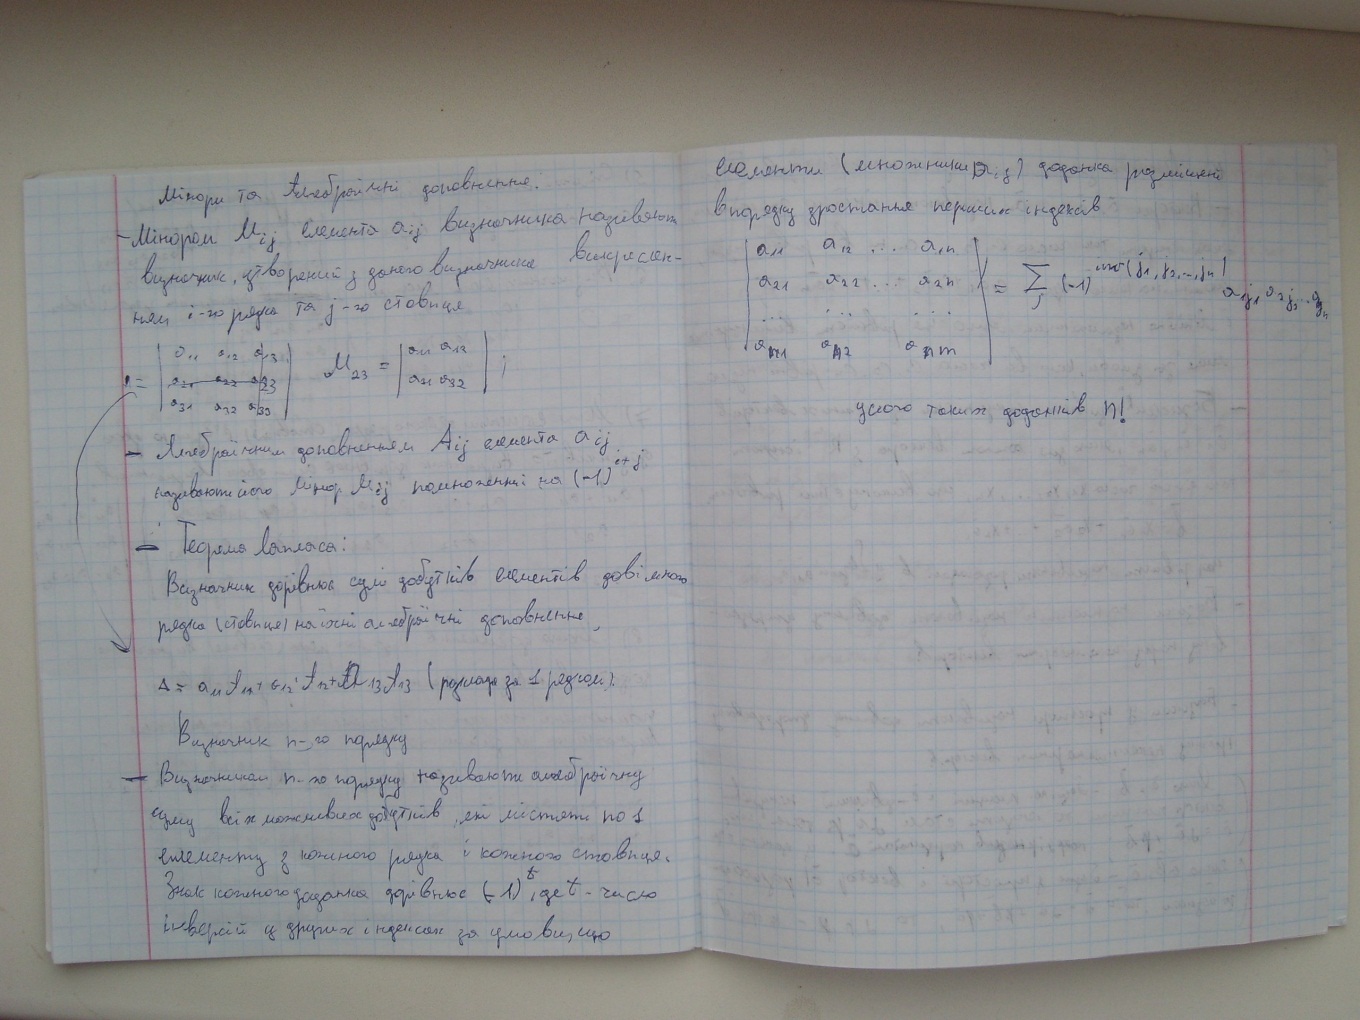 Мінори та Алгебраїчні доповнення.
- Мінором Mij елемента aij визначника називають
визначник, утворений з даного визначника викреслен-
ням i-го рядка та j-го стовпця
Δ = | a11 a12 a13 | M23 = | a11 a12 | ;
| a21 a22 a23 | | a31 a32 |
| a31 a32 a33 |
- Алгебраїчним доповненням Aij елемента aij
називають його мінор Mij помножений на (-1)^i+j
- Теорема Лапласа:
Визначник дорівнює сумі добутків елементів довільного
рядка (стовпця) на їхні алгебраїчні доповнення.
Δ = a11 A11 + a12 A12 + a13 A13 (розклад за 1 рядком).
Визначник n-го порядку
- Визначником n-го порядку називають алгебраїчну
суму всіх можливих добутків, які містять по 1
елементу з кожного рядка і кожного стовпця.
Знак кожного доданка дорівнює (-1)^t, де t - число
інверсій у других індексах за умови, що
елементи (множники aij) доданка розміщені
в порядку зростання перших індексів
| a11 a12 ... a1n |
| a21 a22 ... a2n | = Σ j (-1)^inv(j1, j2, ..., jn) a1j1 a2j2 ... anjn
| ... ... ... |
| an1 an2 ann |
усього таких доданків n!